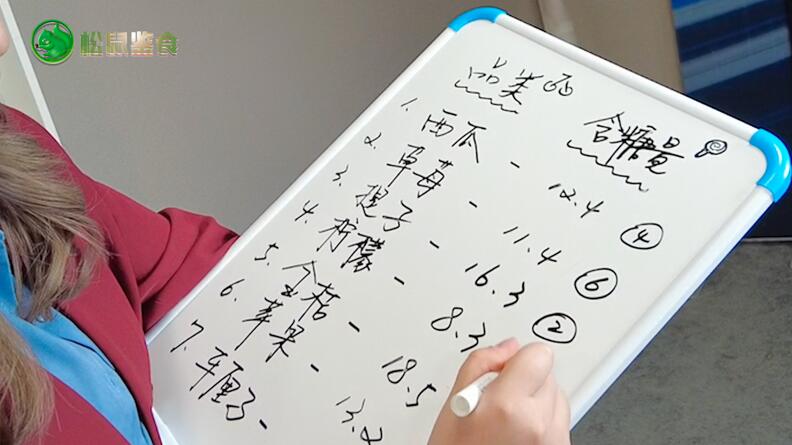 松鼠鉴食
品类 含糖量
1. 西瓜 - 12.4 ④
2. 草莓 - 11.4 ⑥
3. 提子 - 16.3 ②
4. 柠檬 - 8.3
5. 金桔 - 18.5
6. 苹果 - 13.2
7. 车厘子 -